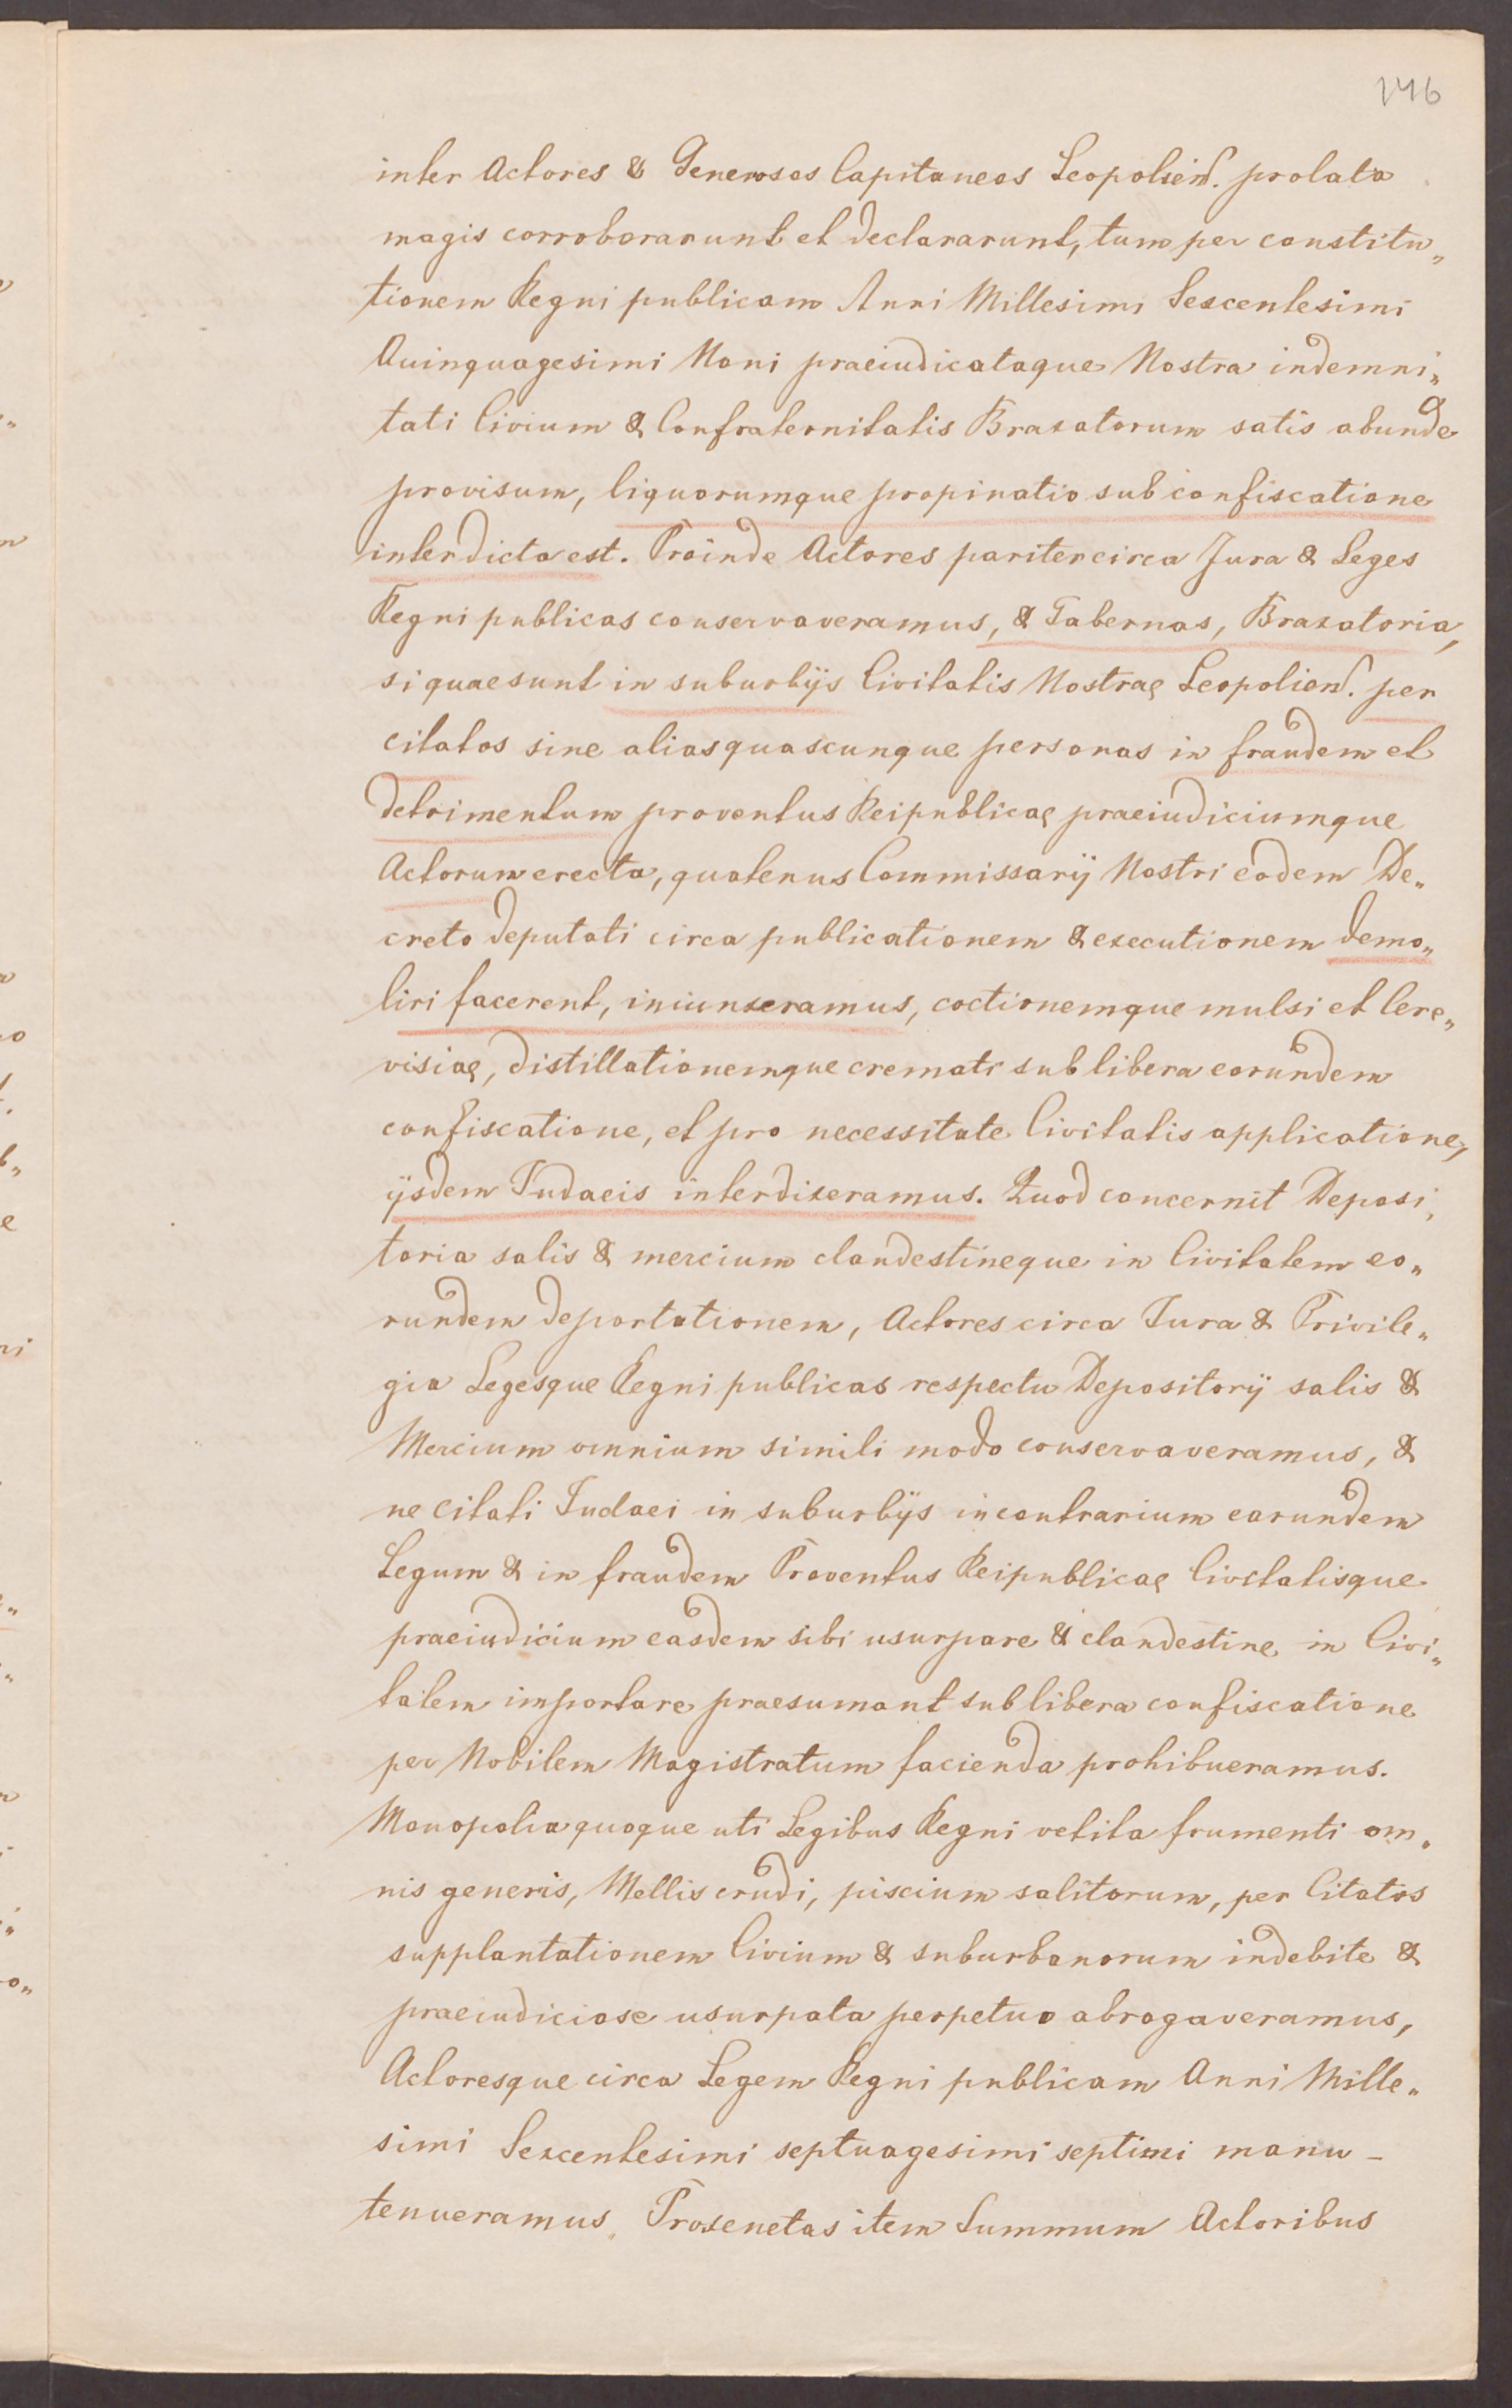 146
inter Actores & Generosos Capitaneos Leopolien̄. prolata
magis corroborarunt et declararunt, tum per constitu„
tionem Regni publicam Anni Millesimi Sexcentesimi
Quinquagesimi Noni praeiudicataque Nostra indemni„
tati Civium & Confraternitatis Braxatorum satis abunde
provisum, liquorumque propinatio sub confiscatione
interdicta est. Proinde Actores pariter circa Jura & Leges
Regni publicas conservaveramus, & Tabernas, Braxatoria,
si quae sunt in suburbijs Civitatis Nostrae Leopolien̄. per
citatos sine alias quascunque personas in fraudem et
detrimentum proventus Reipublicae praeiudiciumque
Actorum erecta, quatenus Commissarij Nostri eodem De„
creto deputati circa publicationem & executionem demo„
liri facerent, iniunxeramus, coctionemque mulsi et Cere„
visiae, distillationemque cremati sub libera eorundem
confiscatione, et pro necessitate Civitatis applicatione,
ijsdem Judaeis interdixeramus. Quod concernit Deposi„
toria salis & mercium clandestineque in Civitatem eo„
rundem deportationem, Actores circa Jura & Privile„
gia Legesque Regni publicas respectu Depositorij salis &
Mercium omnium simili modo conservaveramus, &
ne Citati Judaei in suburbijs in contrarium earundem
Legum & in fraudem Proventus Reipublicae Civitatisque
praeiudicium easdem sibi usurpare & clandestine in Civi„
tatem importare praesumant sub libera confiscatione
per Nobilem Magistratum facienda prohibueramus.
Monopolia quoque uti Legibus Regni vetita frumenti om„
nis generis, Mellis crudi, piscium salitorum, per Citatos
supplantationem Civium & suburbanorum indebite &
praeiudiciose usurpata perpetuo abrogaveramus,
Actoresque circa Legem Regni publicam Anni Mille„
simi Sexcentesimi septuagesimi septimi manu-
tenueramus, Proxenetas item Summum Actoribus